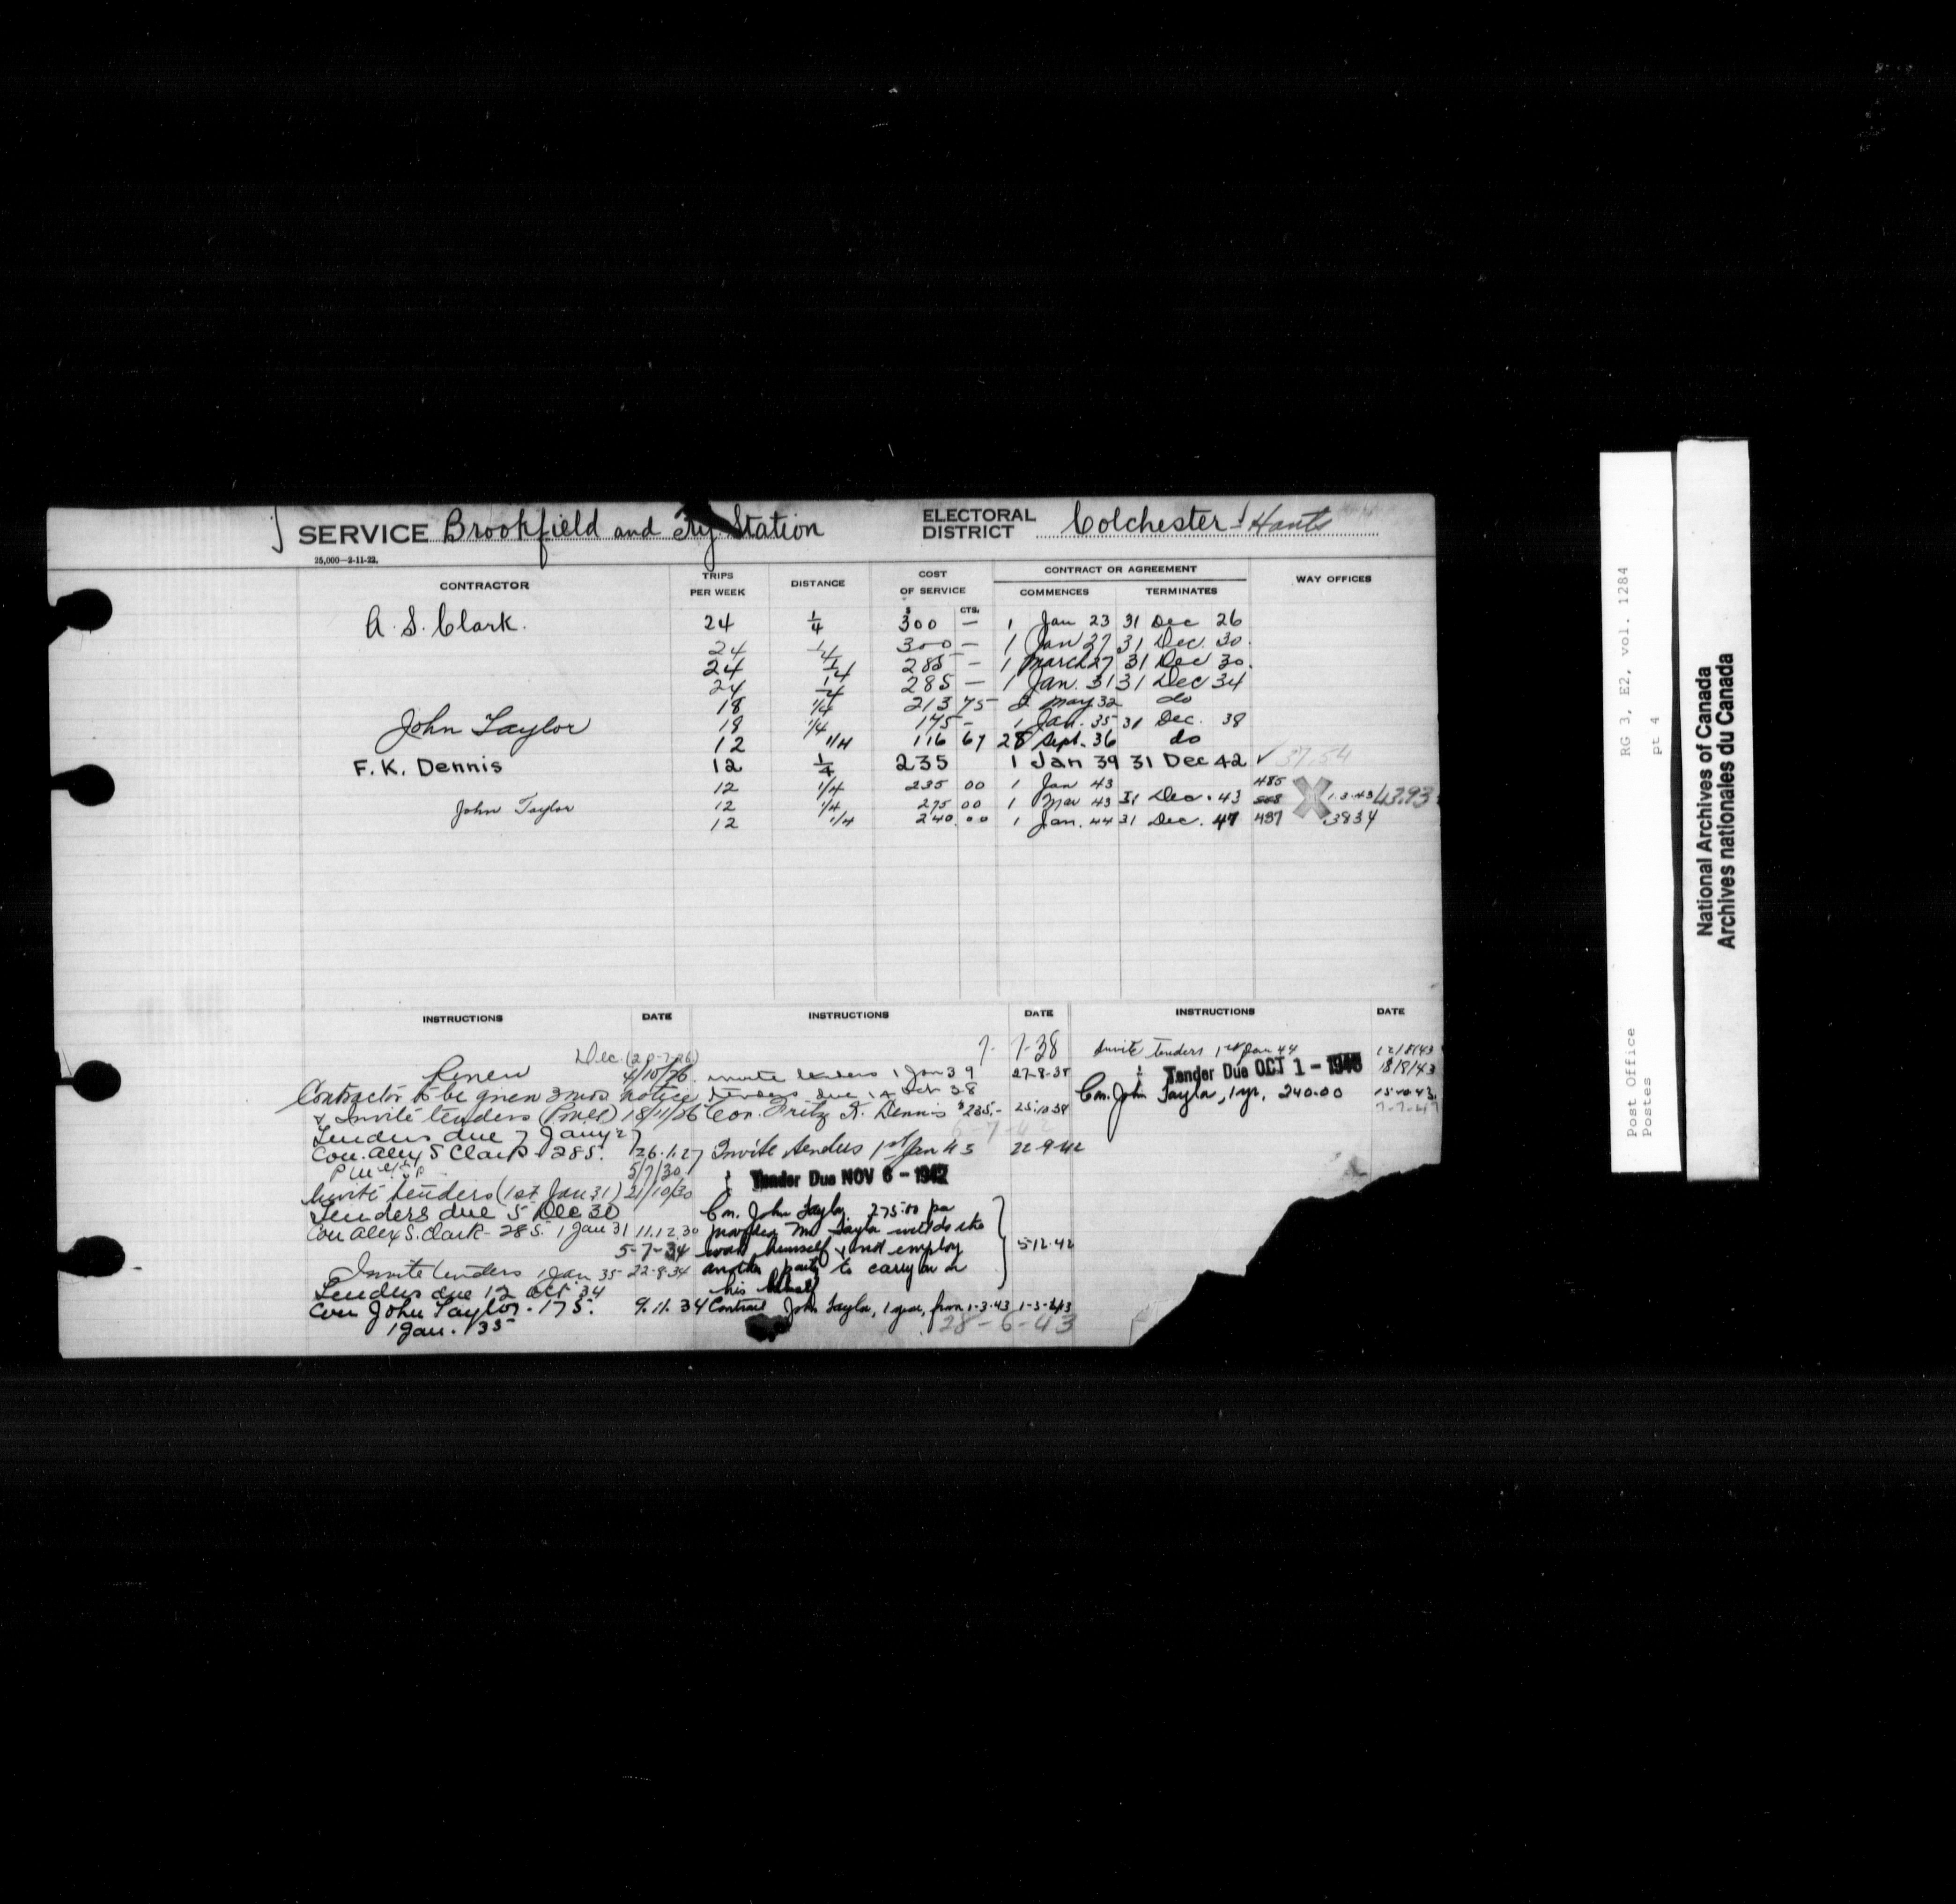 SERVICE Brookfield and Ry. Station ELECTORAL DISTRICT Colchester Hants
25,000—2-11-22.
CONTRACTOR TRIPS PER WEEK DISTANCE COST OF SERVICE CONTRACT OR AGREEMENT COMMENCES TERMINATES WAY OFFICES
$ CTS.
A. S. Clark. 24 1/4 300 — 1 Jan 23 31 Dec 26
24 1/4 300 — 1 Jan 27 31 Dec. 30.
24 1/4 285 — 1 March 27 31 Dec 30.
24 1/4 285 — 1 Jan. 31 31 Dec 34
18 1/4 213 75 2 May 32 do
John Taylor 18 1/4 175 — 1 Jan. 35 31 Dec. 38
12 1/4 116 67 28 Sept. 36 do
F. K. Dennis 12 1/4 235 1 Jan 39 31 Dec 42 ✓ 37.54
12 1/4 235 00 1 Jan 43 485
John Taylor 12 1/4 275 00 1 Mar 43 31 Dec. 43 568 1.3.43 43.93
12 1/4 240.00 1 Jan. 44 31 Dec. 47 497 3834
INSTRUCTIONS DATE INSTRUCTIONS DATE INSTRUCTIONS DATE
Dec. (20-7-26)
Renew 4/10/26
Contractor to be given 3 mos. notice
& Invite tenders 18/11/26
Tenders due 7 Jany 27
Con. Alex S Clark - 285. 26.1.27
5/7/30
Invite tenders (1st Jan 31) 21/10/30
Tenders due 5 Dec 30
Con Alex S. Clark - 285. 1 Jan 31 11.12.30
5-7-34
Invite tenders 1 Jan 35 22-8-34
Tenders due 12 Oct 34
Con John Taylor - 175. 9.11.34
1 Jan. 35
7. 7-38
Invite tenders 1 Jan 39 27-8-38
Tenders due 14 Oct 38
Con. Fritz K. Dennis $235.- 25.10.38
6-7-42
Invite tenders 1st Jan 43 22-9-42
Tender Due NOV 6 - 1942
Con. John Taylor 275.00 pa
provided Mr Taylor will do the
work himself & not employ 5-12-42
another party to carry on in
his behalf
Contract John Taylor, 1 year, from 1-3-43 1-3-43
28-6-43
Invite Tenders 1st Jan 44 12/8/43
Tender Due OCT 1 - 1943 18/8/43
Con. John Taylor, 1 yr. 240.00 15-10-43.
7-7-47
Post Office RG 3, E2, vol. 1284
Postes pt 4
National Archives of Canada
Archives nationales du Canada